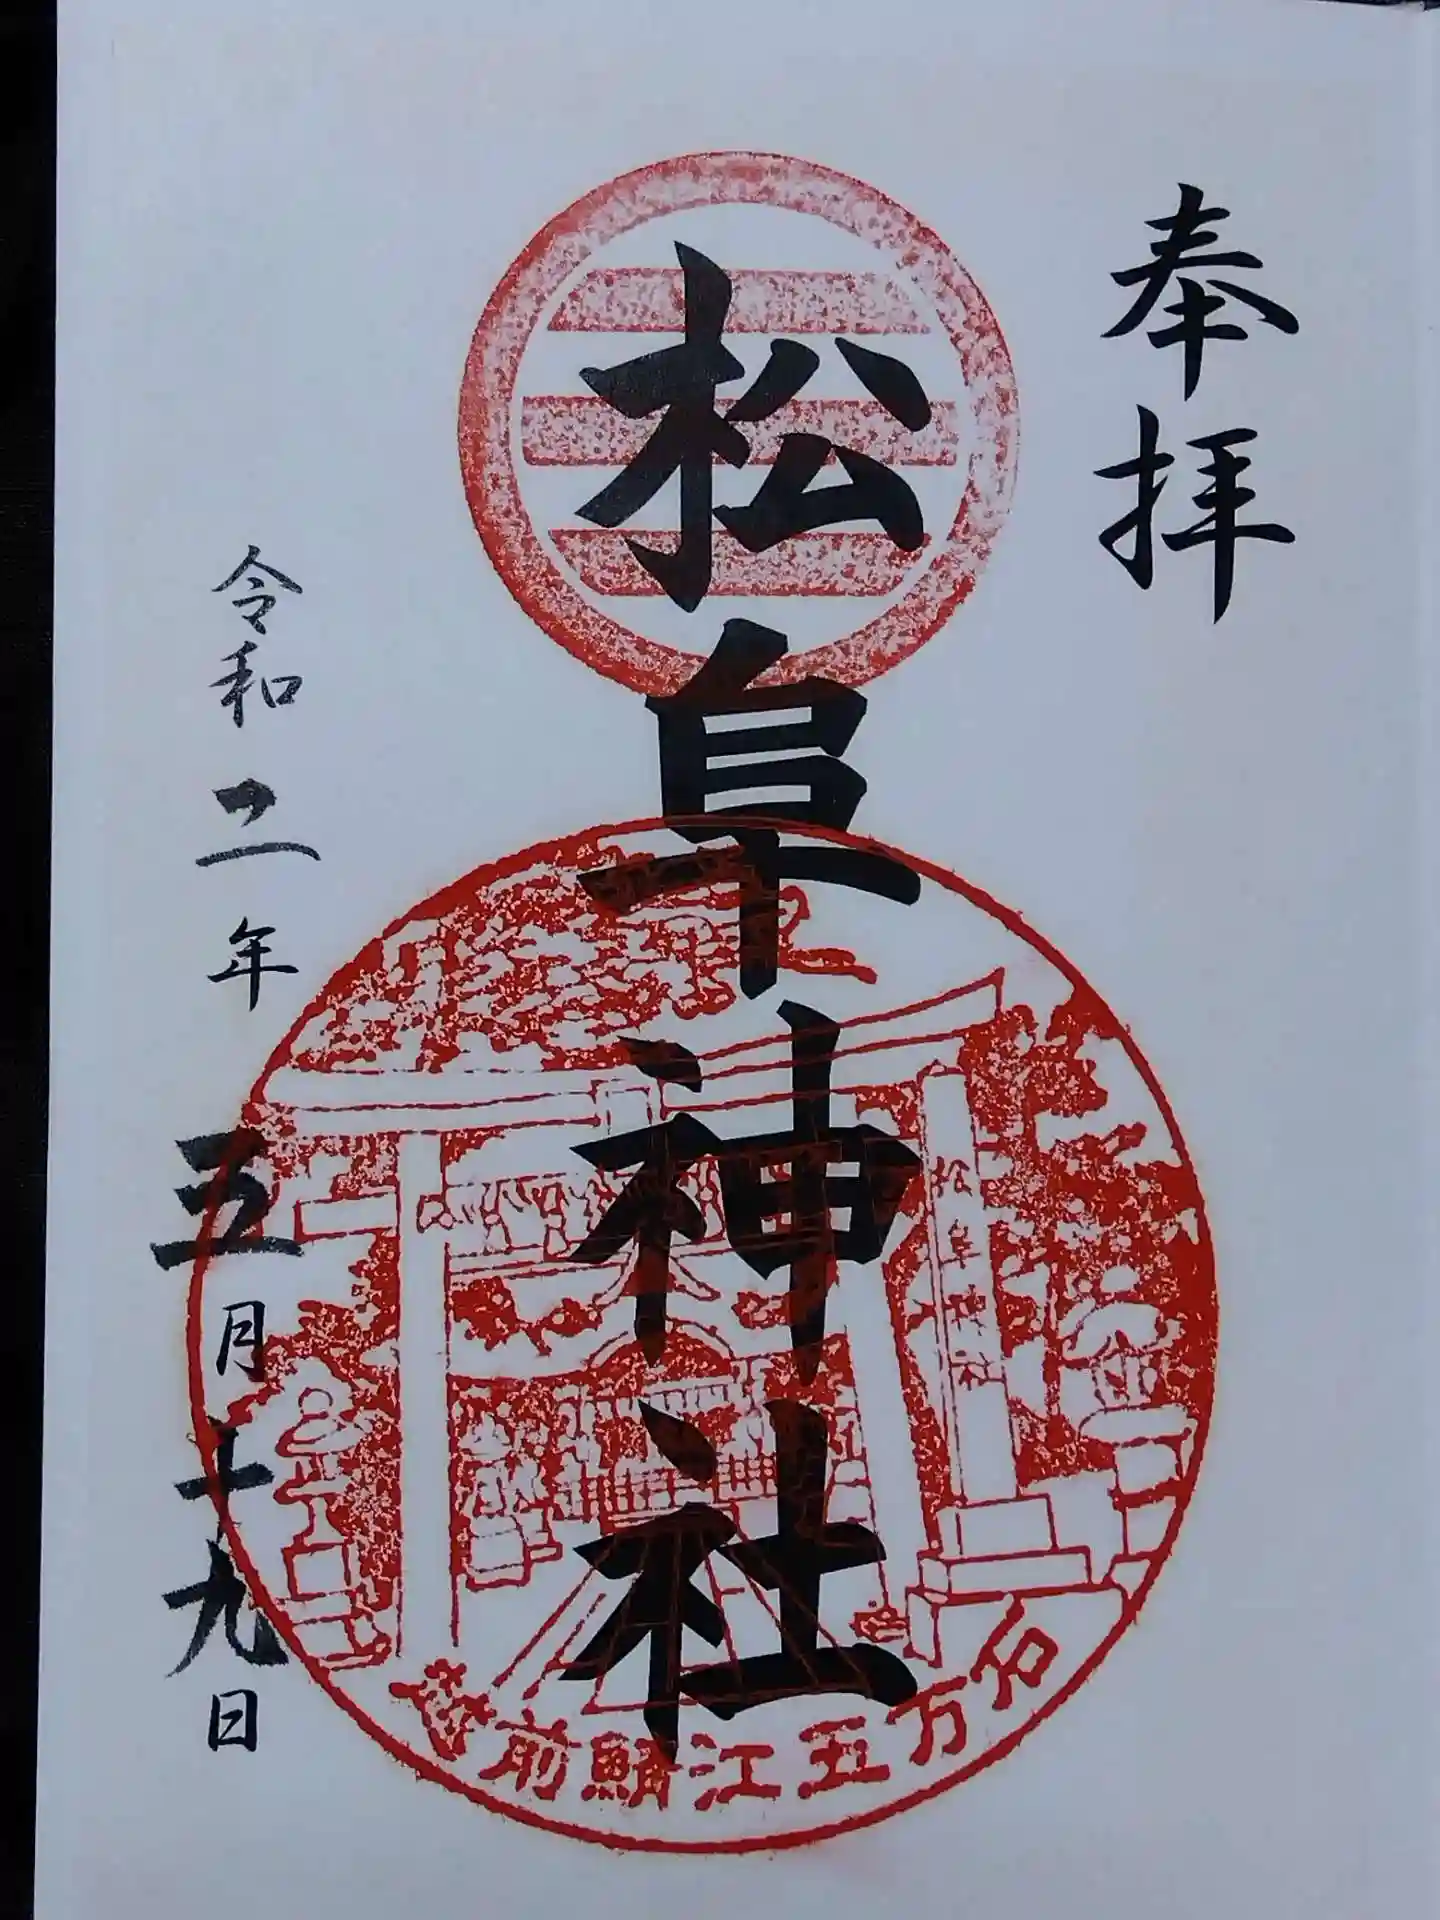 奉拝
松阜神社
令和二年五月十九日
松阜神社
越前鯖江五万石